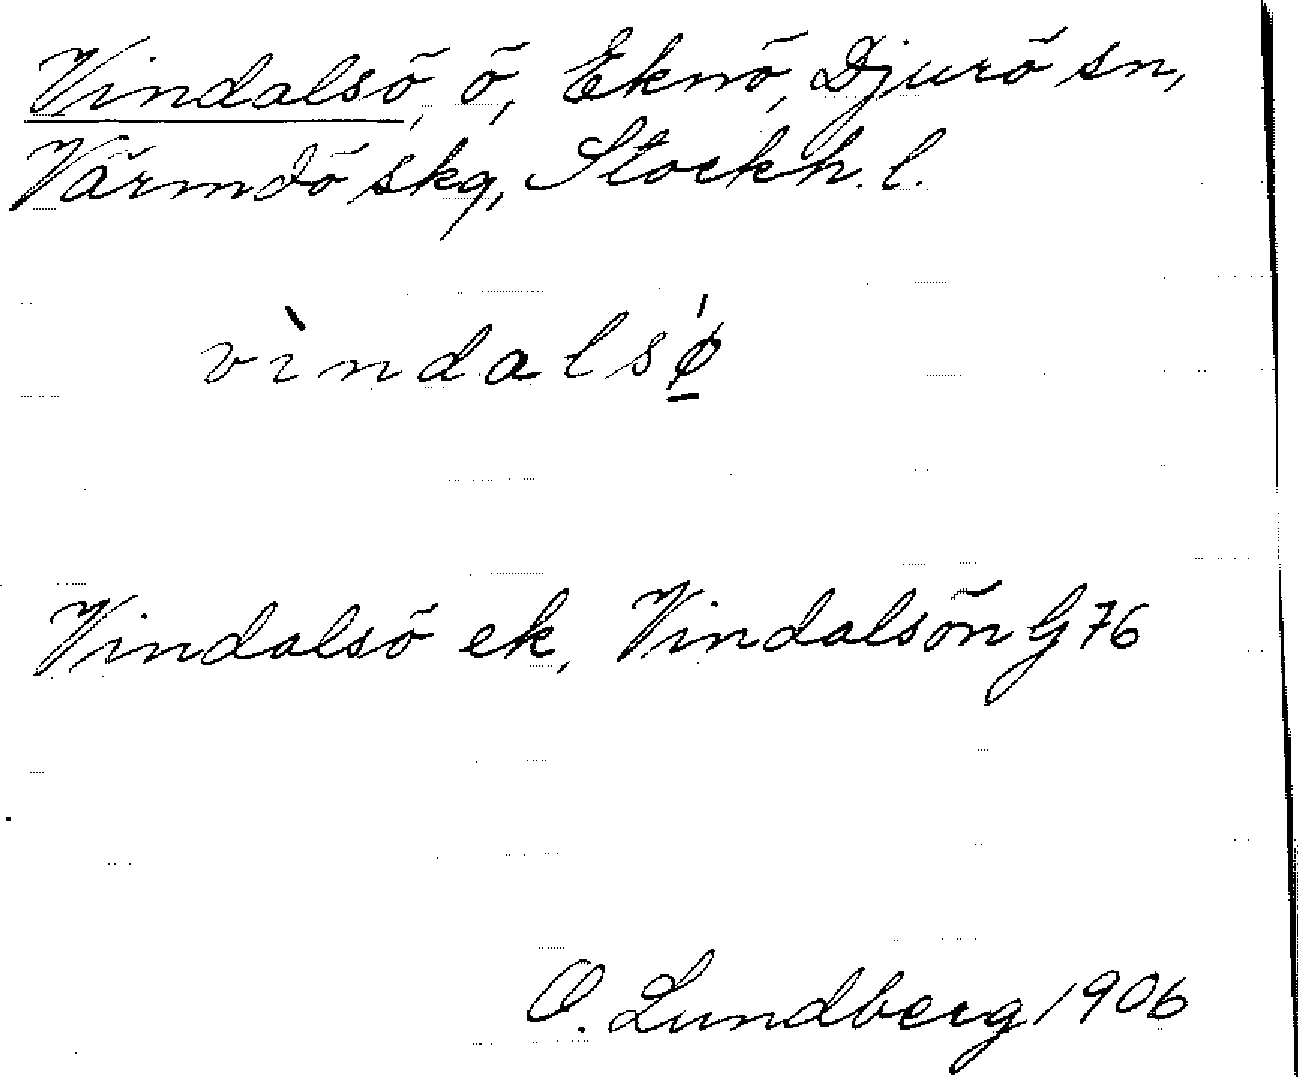 Vindalsö, ö, Eknö, Djurö sn,
Värmdö skg, Stockh. l.
vìndalsǿ̱
Vindalsö ek, Vindalsön G 76
O. Lundberg 1906